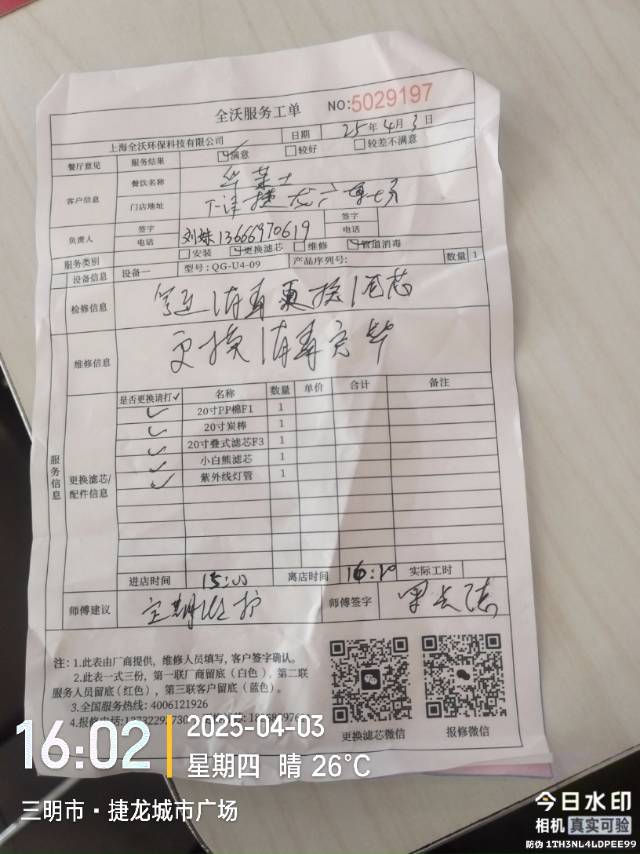 全沃服务工单 NO:5029197
上海全沃环保科技有限公司 日期 25年4月3日
餐厅意见 服务结果 ☑满意 □较好 □较差不满意
客户信息 餐饮名称 华莱士
门店地址
负责人 签字 签字
电话 刘妹13666970619 电话
服务类别 □安装 ☑更换滤芯 □维修 ☑管道消毒
设备信息 设备一 型号: QG-U4-09 产品序列号: 数量 1
检修信息 管道消毒更换滤芯
维修信息 更换消毒完毕
服务信息 更换滤芯/配件信息
是否更换请打✓ 名称 数量 单价 合计 备注
✓ 20寸PP棉F1 1
✓ 20寸炭棒 1
✓ 20寸叠式滤芯F3 1
✓ 小白熊滤芯 1
✓ 紫外线灯管 1
进店时间 15:00 离店时间 16:20 实际工时
师傅建议 定期维护 师傅签字
注: 1.此表由厂商提供, 维修人员填写, 客户签字确认。
2.此表一式三份, 第一联厂商留底(白色)、第二联
服务人员留底(红色), 第三联客户留底(蓝色)。
3.全国服务热线: 4006121926
4.报修电话:
更换滤芯微信 报修微信
16:02 2025-04-03
星期四 晴 26°C
三明市·捷龙城市广场
今日水印
相机 真实可验
防伪 1TH3NL4LDPEE99